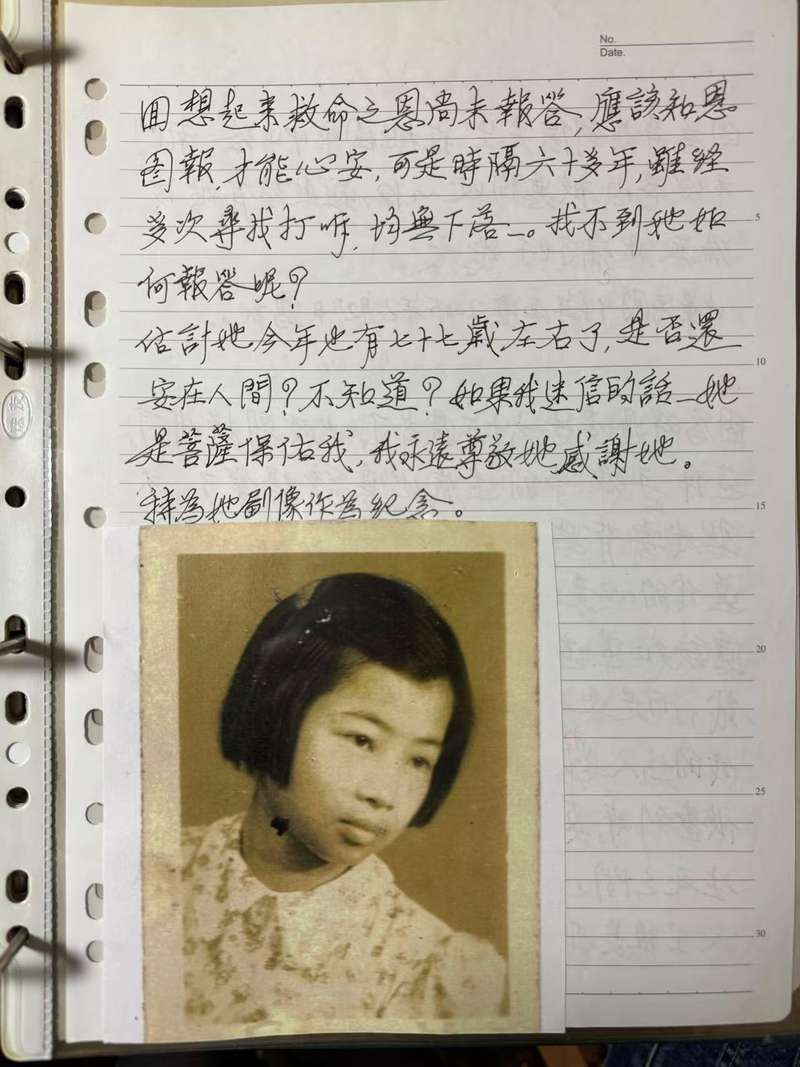 No.
Date.
回想起来救命之恩尚未報答,應該知恩
图報,才能心安,可是時隔六十多年,雖经
多次尋找打听,均無下落_。找不到她如
何報答呢?
估計她今年也有七十七歲左右了,是否還
安在人間?不知道?如果我迷信的話_她
是菩薩保佑我,我永遠尊敬她感謝她。
特為她副像作為紀念。
5
10
15
20
25
30